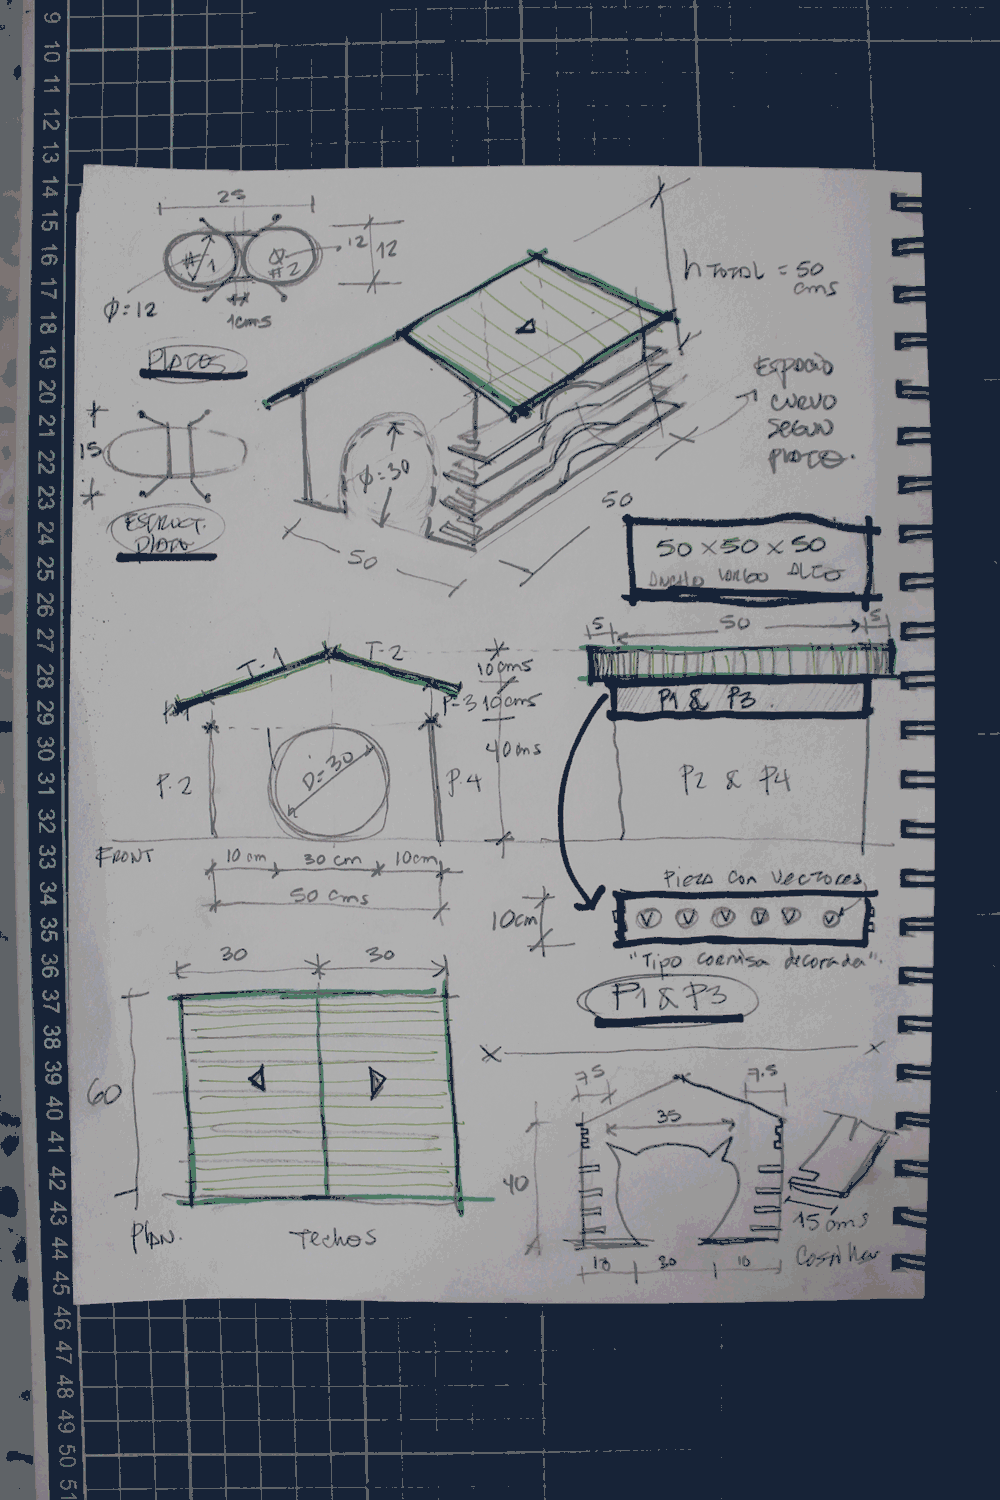 9
10
11
12
13
14
15
16
17
18
19
20
21
22
23
24
25
26
27
28
29
30
31
32
33
34
35
36
37
38
39
40
41
42
43
44
45
46
47
48
49
50
51
25
#1
#2
12
12
Ø=12
1cms
PLATOS
h TOTAL = 50
cms
ESPACIO
CURVO
SEGUN
PLATO.
15
ESTRUCT.
PLATO
Ø=30
50
50
50 x 50 x 50
ANCHO LARGO ALTO
5
50
5
T-1
T-2
10cms
P-3
10cms
40cms
P1 & P3.
P.2
D=30
P.4
P2 & P4
FRONT
10 cm
30 cm
10cm
50 cms
Pieza con vectores
10cm
"Tipo cornisa decorada".
P1 & P3
30
30
60
PLAN.
Techos
7.5
7.5
35
40
10
30
10
15 cms